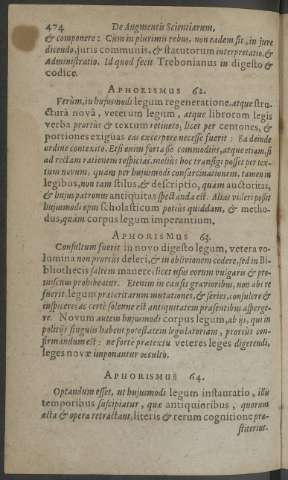 474 De Augmentis Scientiarum,
& componere: Cùm in plurimis rebus, non eadem sit, in jure
dicendo, juris communis, & statutorum interpretatio, &
Administratio. Id quod fecit Trebonianus in digesto &
codice.
APHORISMUS 62.
Verùm, in hujusmodi legum regeneratione, atque stru-
cturâ novâ, veterum legum, atque librorum legis
verba prorsùs & textum retineto, licet per centones, &
portiones exiguas eas excerpere necesse fuerit: Ea deinde
ordine contexito. Etsi enim fortasse commodiùs, atque etiam, si
ad rectam rationem respicias, meliùs hoc transigi posset per tex-
tum novum, quam per hujusmodi consarcinationem, tamen in
legibus, non tam stilus, & descriptio, quàm auctoritas,
& hujus patronus antiquitas spectanda est. Alias videri posset
hujusmodi opus scholasticum potiùs quiddam, & metho-
dus, quàm corpus legum imperantium.
APHORISMUS 63.
Consultum fuerit in novo digesto legum, vetera vo-
lumina non prorsùs deleri, & in oblivionem cedere, sed in Bi-
bliothecis saltem manere: licet usus eorum vulgaris & pro-
miscuus prohibeatur. Etenim in causis gravioribus, non ab re
fuerit legum præteritarum mutationes, & series, consulere &
inspicere: ac certè solenne est antiquitatem præsentibus asperge-
re. Novum autem hujusmodi corpus legum, ab iis, qui in
politiis singulis habent potestatem legislatoriam, prorsùs con-
firmandum est: ne forte prætextu veteres leges digerendi,
leges novæ imponantur occultò.
APHORISMUS 64.
Optandum esset, ut hujusmodi legum instauratio, illis
temporibus suscipiatur, quæ antiquioribus, quorum
acta & opera retractant, literis & rerum cognitione præ-
stiterint.